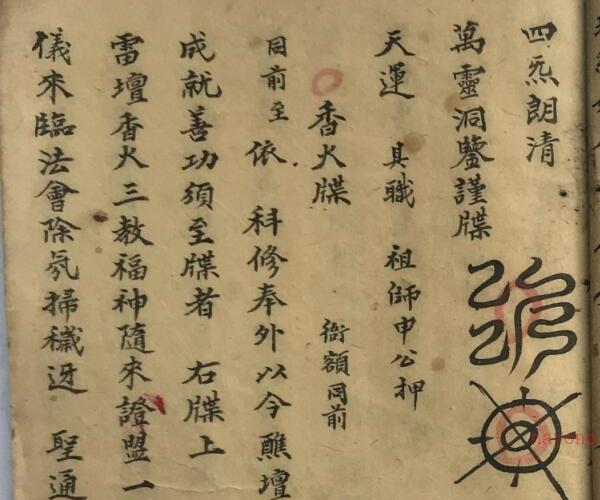 四炁朗清
萬靈洞鑒謹牒
天運 具職 祖師申公押
香火牒 銜額同前
同前至 依 科修奉外以今醮壇
成就善功須至牒者 右牒上
雷壇香火三教福神隨來證盟一
儀來臨法會除氛掃穢迓 聖通